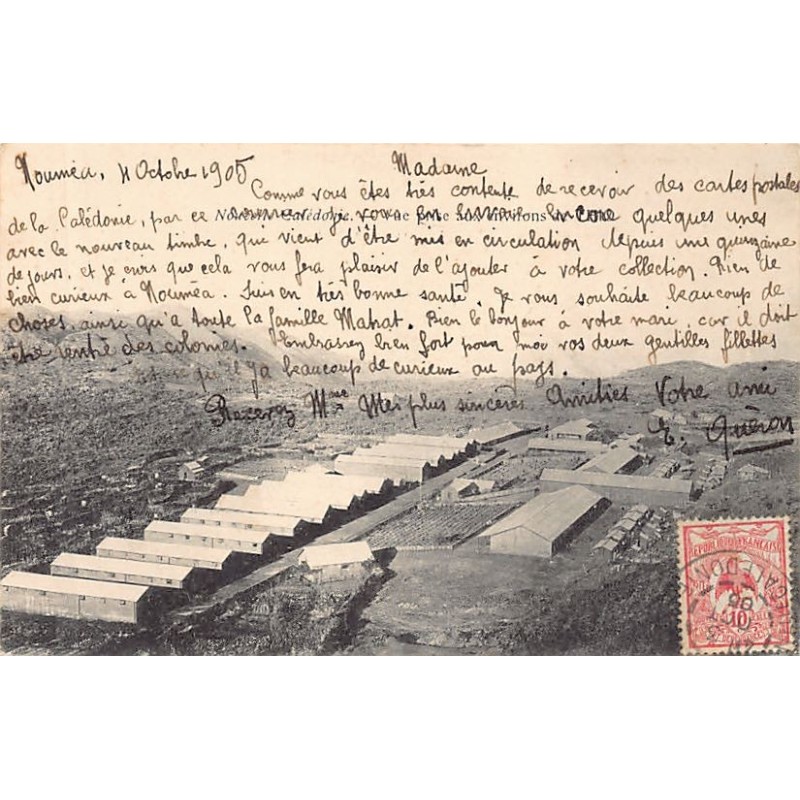 Nouméa, 4 Octobre 1905
Madame
Comme vous êtes très contente de recevoir des cartes postales
de la Calédonie, par ce je vous en encore quelques unes
avec le nouveau timbre, que vient d'être mis en circulation depuis une quinzaine
de jours, et je crois que cela vous fera plaisir de l'ajouter à votre collection. Rien de
bien curieux à Nouméa. Suis en très bonne santé. Je vous souhaite beaucoup de
choses ainsi qu'a toute la famille Mahat. Bien le bonjour à votre mari, car il doit
être rentré des colonies. Embrassez bien fort pour moi vos deux gentilles fillettes
qu'il y a beaucoup de curieux au pays.
Recevez Mme Mes plus sincères Amitiés Votre ami
E. Quéron
RÉPUBLIQUE FRANÇAISE
10
CALÉDONIE